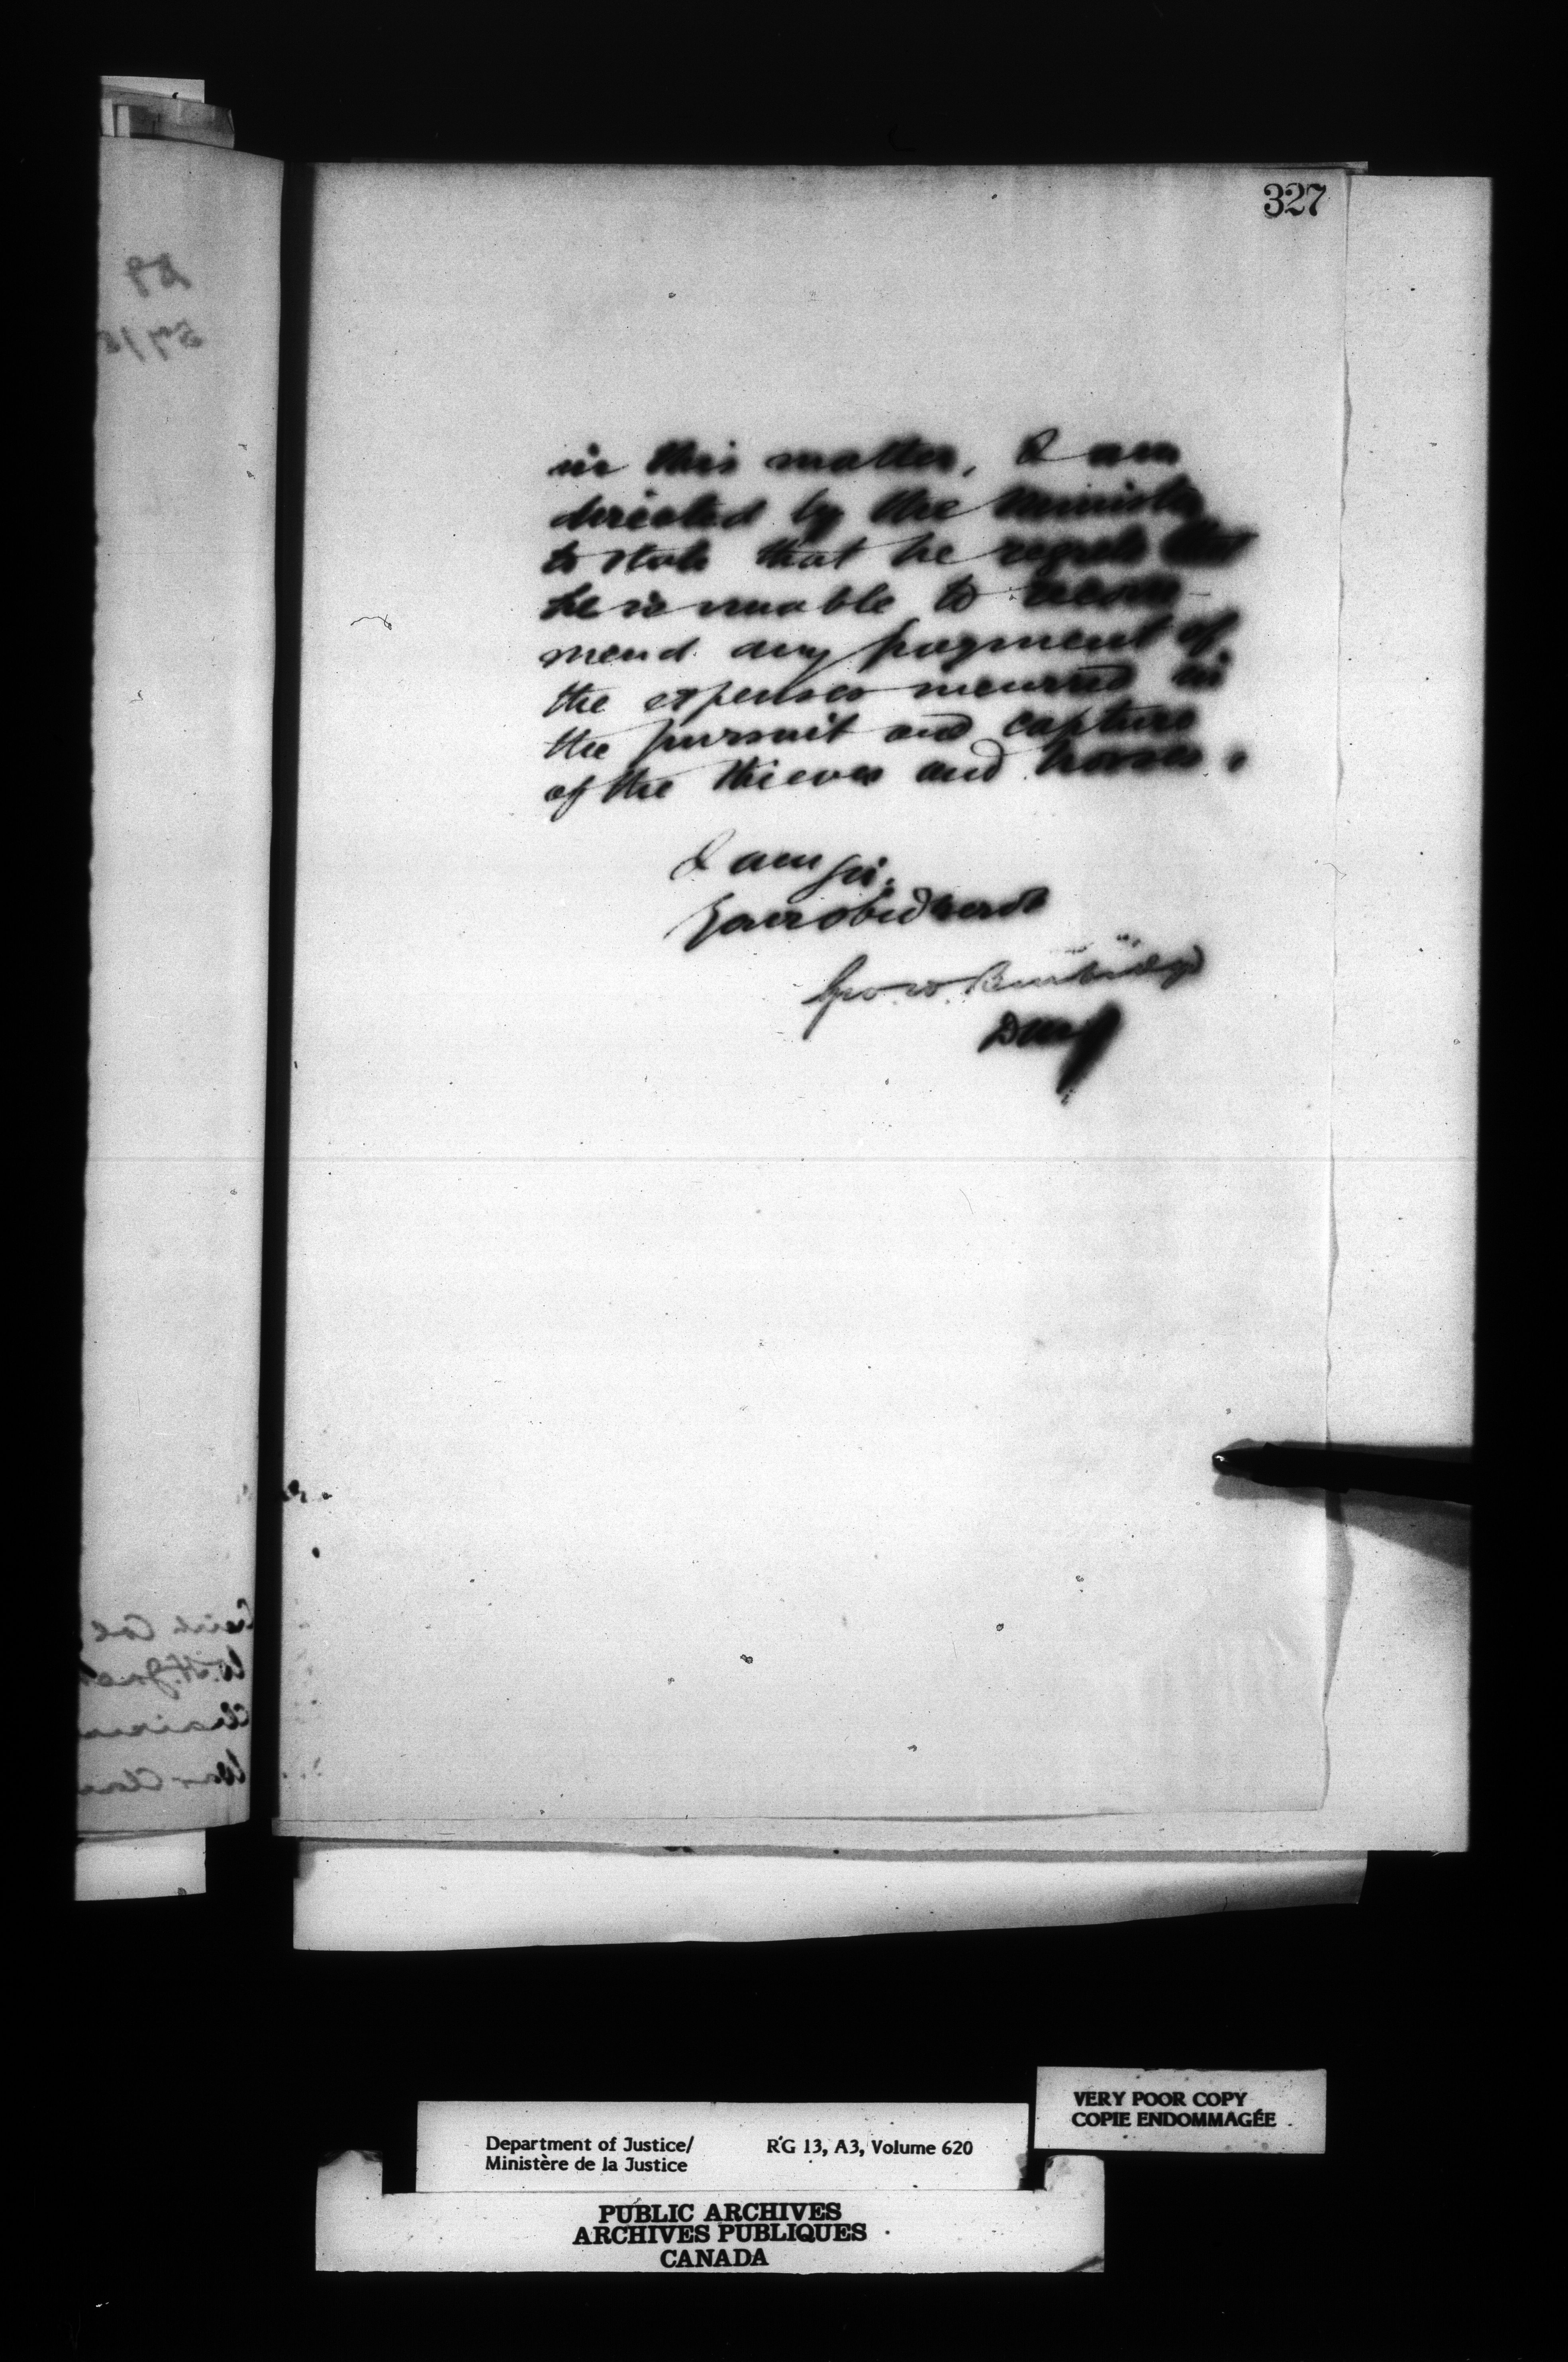 327
in this matter, I am
directed by the Minister
to state that he regrets that
he is unable to recom-
mend any payment of
the expenses incurred in
the pursuit and capture
of the thieves and horses.
I am Sir,
Your obed servt
Geo. W. Burbidge
DMJ
VERY POOR COPY
COPIE ENDOMMAGÉE
Department of Justice/ RG 13, A3, Volume 620
Ministère de la Justice
PUBLIC ARCHIVES
ARCHIVES PUBLIQUES
CANADA